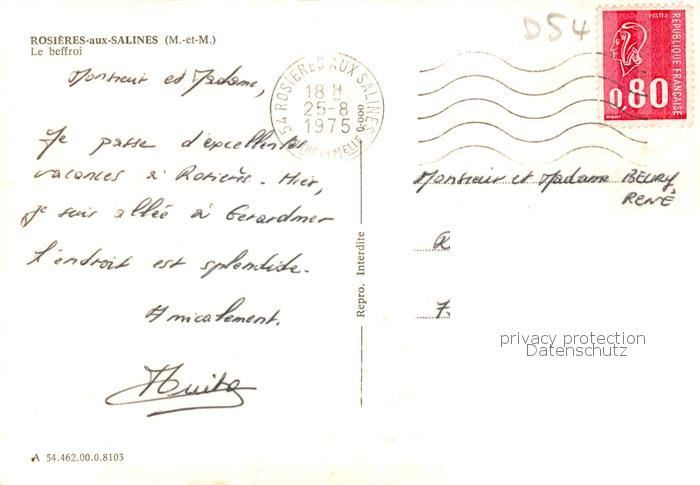 ROSIÈRES-aux-SALINES (M.-et-M.)
Le beffroi
Monsieur et Madame,
Je passe d'excellentes
vacances à Rosières. Hier,
je suis allée à Gerardmer
l'endroit est splendide.
Amicalement.
A 54.462.00.0.8103
Repro. Interdite 0-000
54 ROSIERES AUX SALINES
18 H
25-8
1975
D54
POSTES
REPUBLIQUE FRANÇAISE
0,80
Monsieur et Madame BEURY
RENÉ
R
7.
privacy protection
Datenschutz